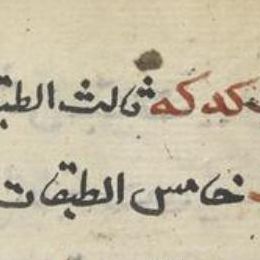 كدكه ثالث الطبق
خامس الطبقات